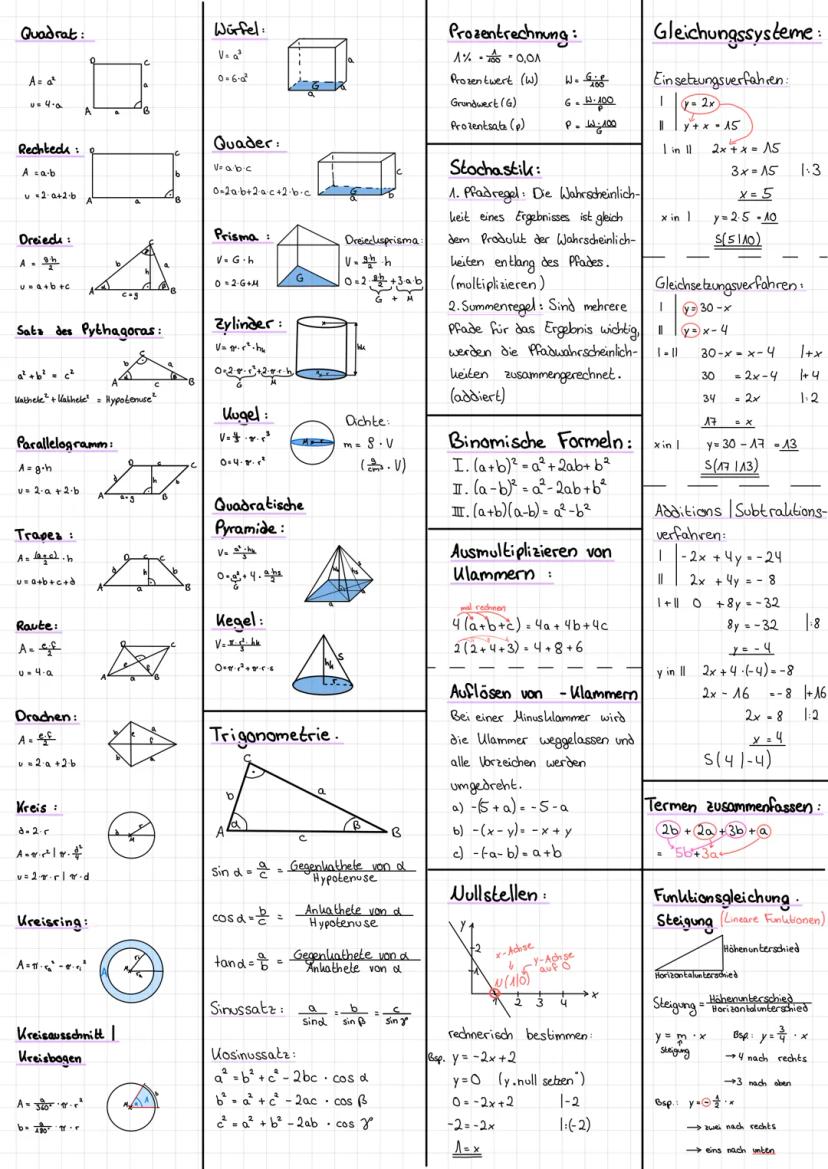 Quadrat:
A = a²
u = 4·a
D
C
a
A
a
B
Rechteck:
A = a·b
u = 2·a+2·b
D
C
b
A
a
B
Dreieck:
A = g·h/2
u = a+b+c
C
b
a
h
A
c=g
B
Satz des Pythagoras:
a² + b² = c²
Kathete² + Kathete² = Hypotenuse²
C
b
a
A
c
B
Parallelogramm:
A = g·h
u = 2·a + 2·b
D
C
h
b
A
a=g
B
Trapez:
A = (a+c)/2 · h
u = a+b+c+d
D
c
C
d
h
b
A
a
B
Raute:
A = e·f/2
u = 4·a
D
C
e
f
A
a
B
Drachen:
A = e·f/2
u = 2·a + 2·b
b
a
e
f
b
a
Kreis:
d = 2·r
u = 2·π·r | π·d
d
M
r
Kreisring:
A = π·rₐ² - π·rᵢ²
A
M
rᵢ
rₐ
Kreisausschnitt |
Kreisbogen
A = α/360° · π·r²
b = α/180° · π · r
M
α
A
b
Würfel:
V = a³
O = 6·a²
G
a
a
a
Quader:
V = a·b·c
O = 2a·b+2·a·c+2·b·c
G
a
b
c
Prisma:
V = G·h
O = 2·G+M
G
Dreiecksprisma:
V = g·h/2 · h
O = 2·g·h/2 + 3·a·b
G + M
Zylinder:
V = π·r²·hₖ
O = 2·π·r²+2·π·r·h
G
M
hₖ
Kugel:
V = 4/3 · π · r³
O = 4·π·r²
M
r
Dichte:
m = ρ · V
(g/cm³ · V)
Quadratische
Pyramide:
V = a²·hₖ/3
O = a² + 4 · a·hs/2
Kegel:
V = π·r²·hₖ/3
O = π·r²+π·r·s
hₖ
s
r
Trigonometrie.
C
b
a
A
α
β
B
c
sin α = a/c = Gegenkathete von α / Hypotenuse
cos α = b/c = Ankathete von α / Hypotenuse
tan α = a/b = Gegenkathete von α / Ankathete von α
Sinussatz: a/sin α = b/sin β = c/sin γ
Kosinussatz:
a² = b² + c² - 2bc · cos α
b² = a² + c² - 2ac · cos β
c² = a² + b² - 2ab · cos γ
Prozentrechnung:
1% = 1/100 = 0,01
Prozentwert (W) W = G·p/100
Grundwert (G) G = W·100/p
Prozentsatz (p) P = W·100/G
Stochastik:
1. Pfadregel: Die Wahrscheinlich-
keit eines Ergebnisses ist gleich
dem Produkt der Wahrscheinlich-
keiten entlang des Pfades.
(multiplizieren)
2. Summenregel: Sind mehrere
Pfade für das Ergebnis wichtig,
werden die Pfadwahrscheinlich-
keiten zusammengerechnet.
(addiert)
Binomische Formeln:
I. (a+b)² = a² + 2ab + b²
II. (a-b)² = a² - 2ab + b²
III. (a+b)(a-b) = a² - b²
Ausmultiplizieren von
Klammern :
mal rechnen
4(a+b+c) = 4a + 4b + 4c
2(2+4+3) = 4 + 8 + 6
Auflösen von -Klammern
Bei einer Minusklammer wird
die Klammer weggelassen und
alle Vorzeichen werden
umgedreht.
a) -(5 + a) = - 5 - a
b) -(x - y) = - x + y
c) -(-a - b) = a + b
Nullstellen:
y
2
1
x-Achse
y-Achse auf 0
N(1|0)
1 2 3 4 x
rechnerisch bestimmen:
Bsp. y = -2x + 2
y = 0 („y null setzen“)
0 = -2x + 2 |-2
-2 = -2x |:(-2)
1 = x
Gleichungssysteme:
Einsetzungsverfahren:
I | y = 2x
II | y + x = 15
I in II 2x + x = 15
3x = 15 |:3
x = 5
x in I y = 2·5 = 10
S(5|10)
Gleichsetzungsverfahren:
I | y = 30 - x
II | y = x - 4
I = II 30 - x = x - 4 |+x
30 = 2x - 4 |+4
34 = 2x |:2
17 = x
x in I y = 30 - 17 = 13
S(17|13)
Additions | Subtraktions-
verfahren:
I | -2x + 4y = -24
II | 2x + 4y = - 8
I + II 0 + 8y = -32
8y = -32 |:8
y = - 4
y in II 2x + 4·(-4) = -8
2x - 16 = -8 |+16
2x = 8 |:2
x = 4
S(4|-4)
Termen zusammenfassen:
2b + 2a + 3b + a
= 5b + 3a
Funktionsgleichung.
Steigung (Lineare Funktionen)
Höhenunterschied
Horizontalunterschied
Steigung = Höhenunterschied / Horizontalunterschied
y = m · x Bsp: y = 3/4 · x
Steigung → 4 nach rechts
→ 3 nach oben
Bsp.: y = -1/2 · x
→ zwei nach rechts
→ eins nach unten